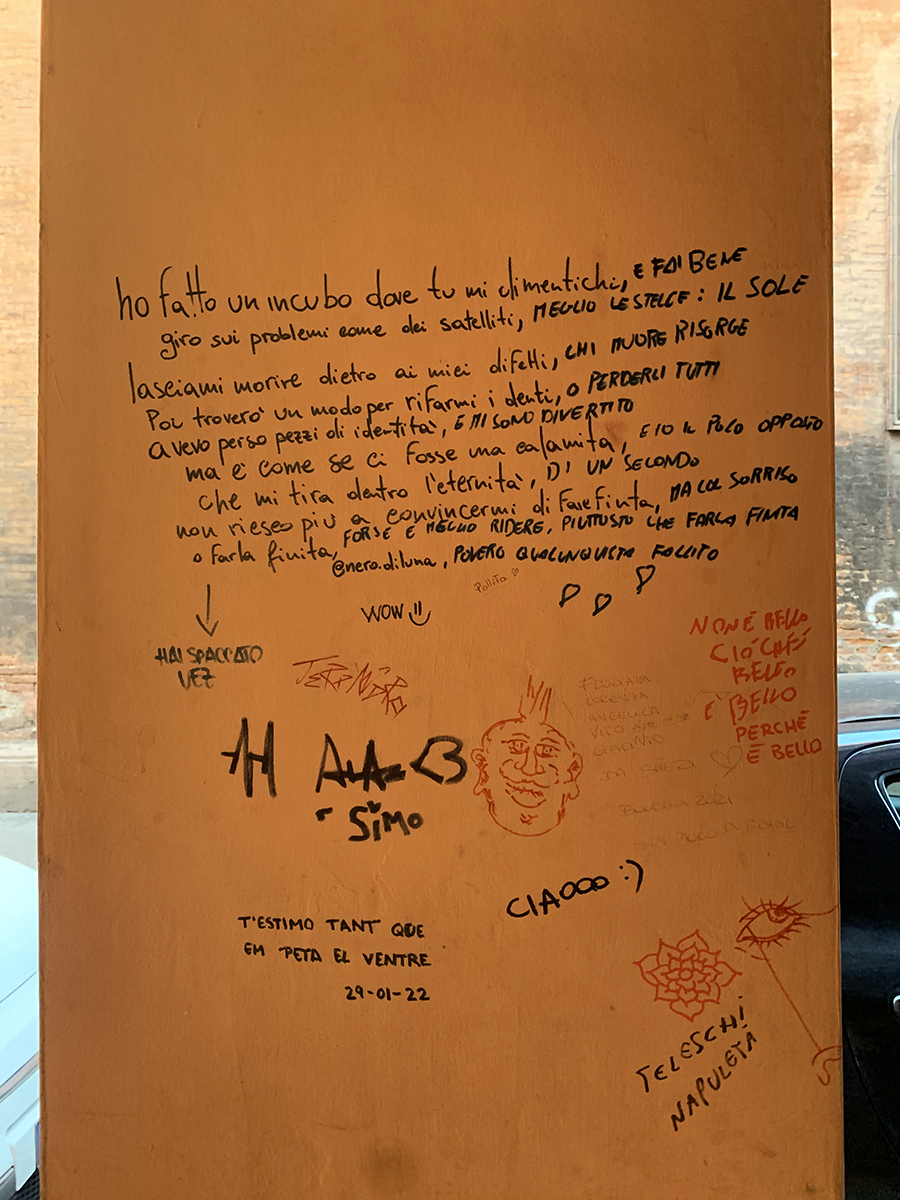 ho fatto un incubo dove tu mi dimentichi, E FAI BENE
giro sui problemi come dei satelliti, MEGLIO LE STELLE: IL SOLE
lasciami morire dietro ai miei difetti, CHI MUORE RISORGE
Poi troverò un modo per rifarmi i denti, O PERDERLI TUTTI
avevo perso pezzi di identità, E MI SONO DIVERTITO
ma è come se ci fosse una calamità, E IO IL POLO OPPOSTO
che mi tira dentro l'eternità, DI UN SECONDO
non riesco più a convincermi di fare finta, MA COL SORRISO
o farla finita, FORSE È MEGLIO RIDERE, PIUTTUSTO CHE FARLA FINITA
@nero.diluna, POVERO QUALUNQUISTA FALLITO
Pollita
WOW
HAI SPACCATO
VEZ
NON È BELLO
CIÒ CH'È
BELLO
È BELLO
PERCHÉ
È BELLO
FLORIANA
LORENZA
ANGELICA
VITO
GIACINTO
DA
2021
<3
SIMO
CIAOOO :)
T'ESTIMO TANT QUE
EM PETA EL VENTRE
29-01-22
TELESCHI
NAPULETÁ